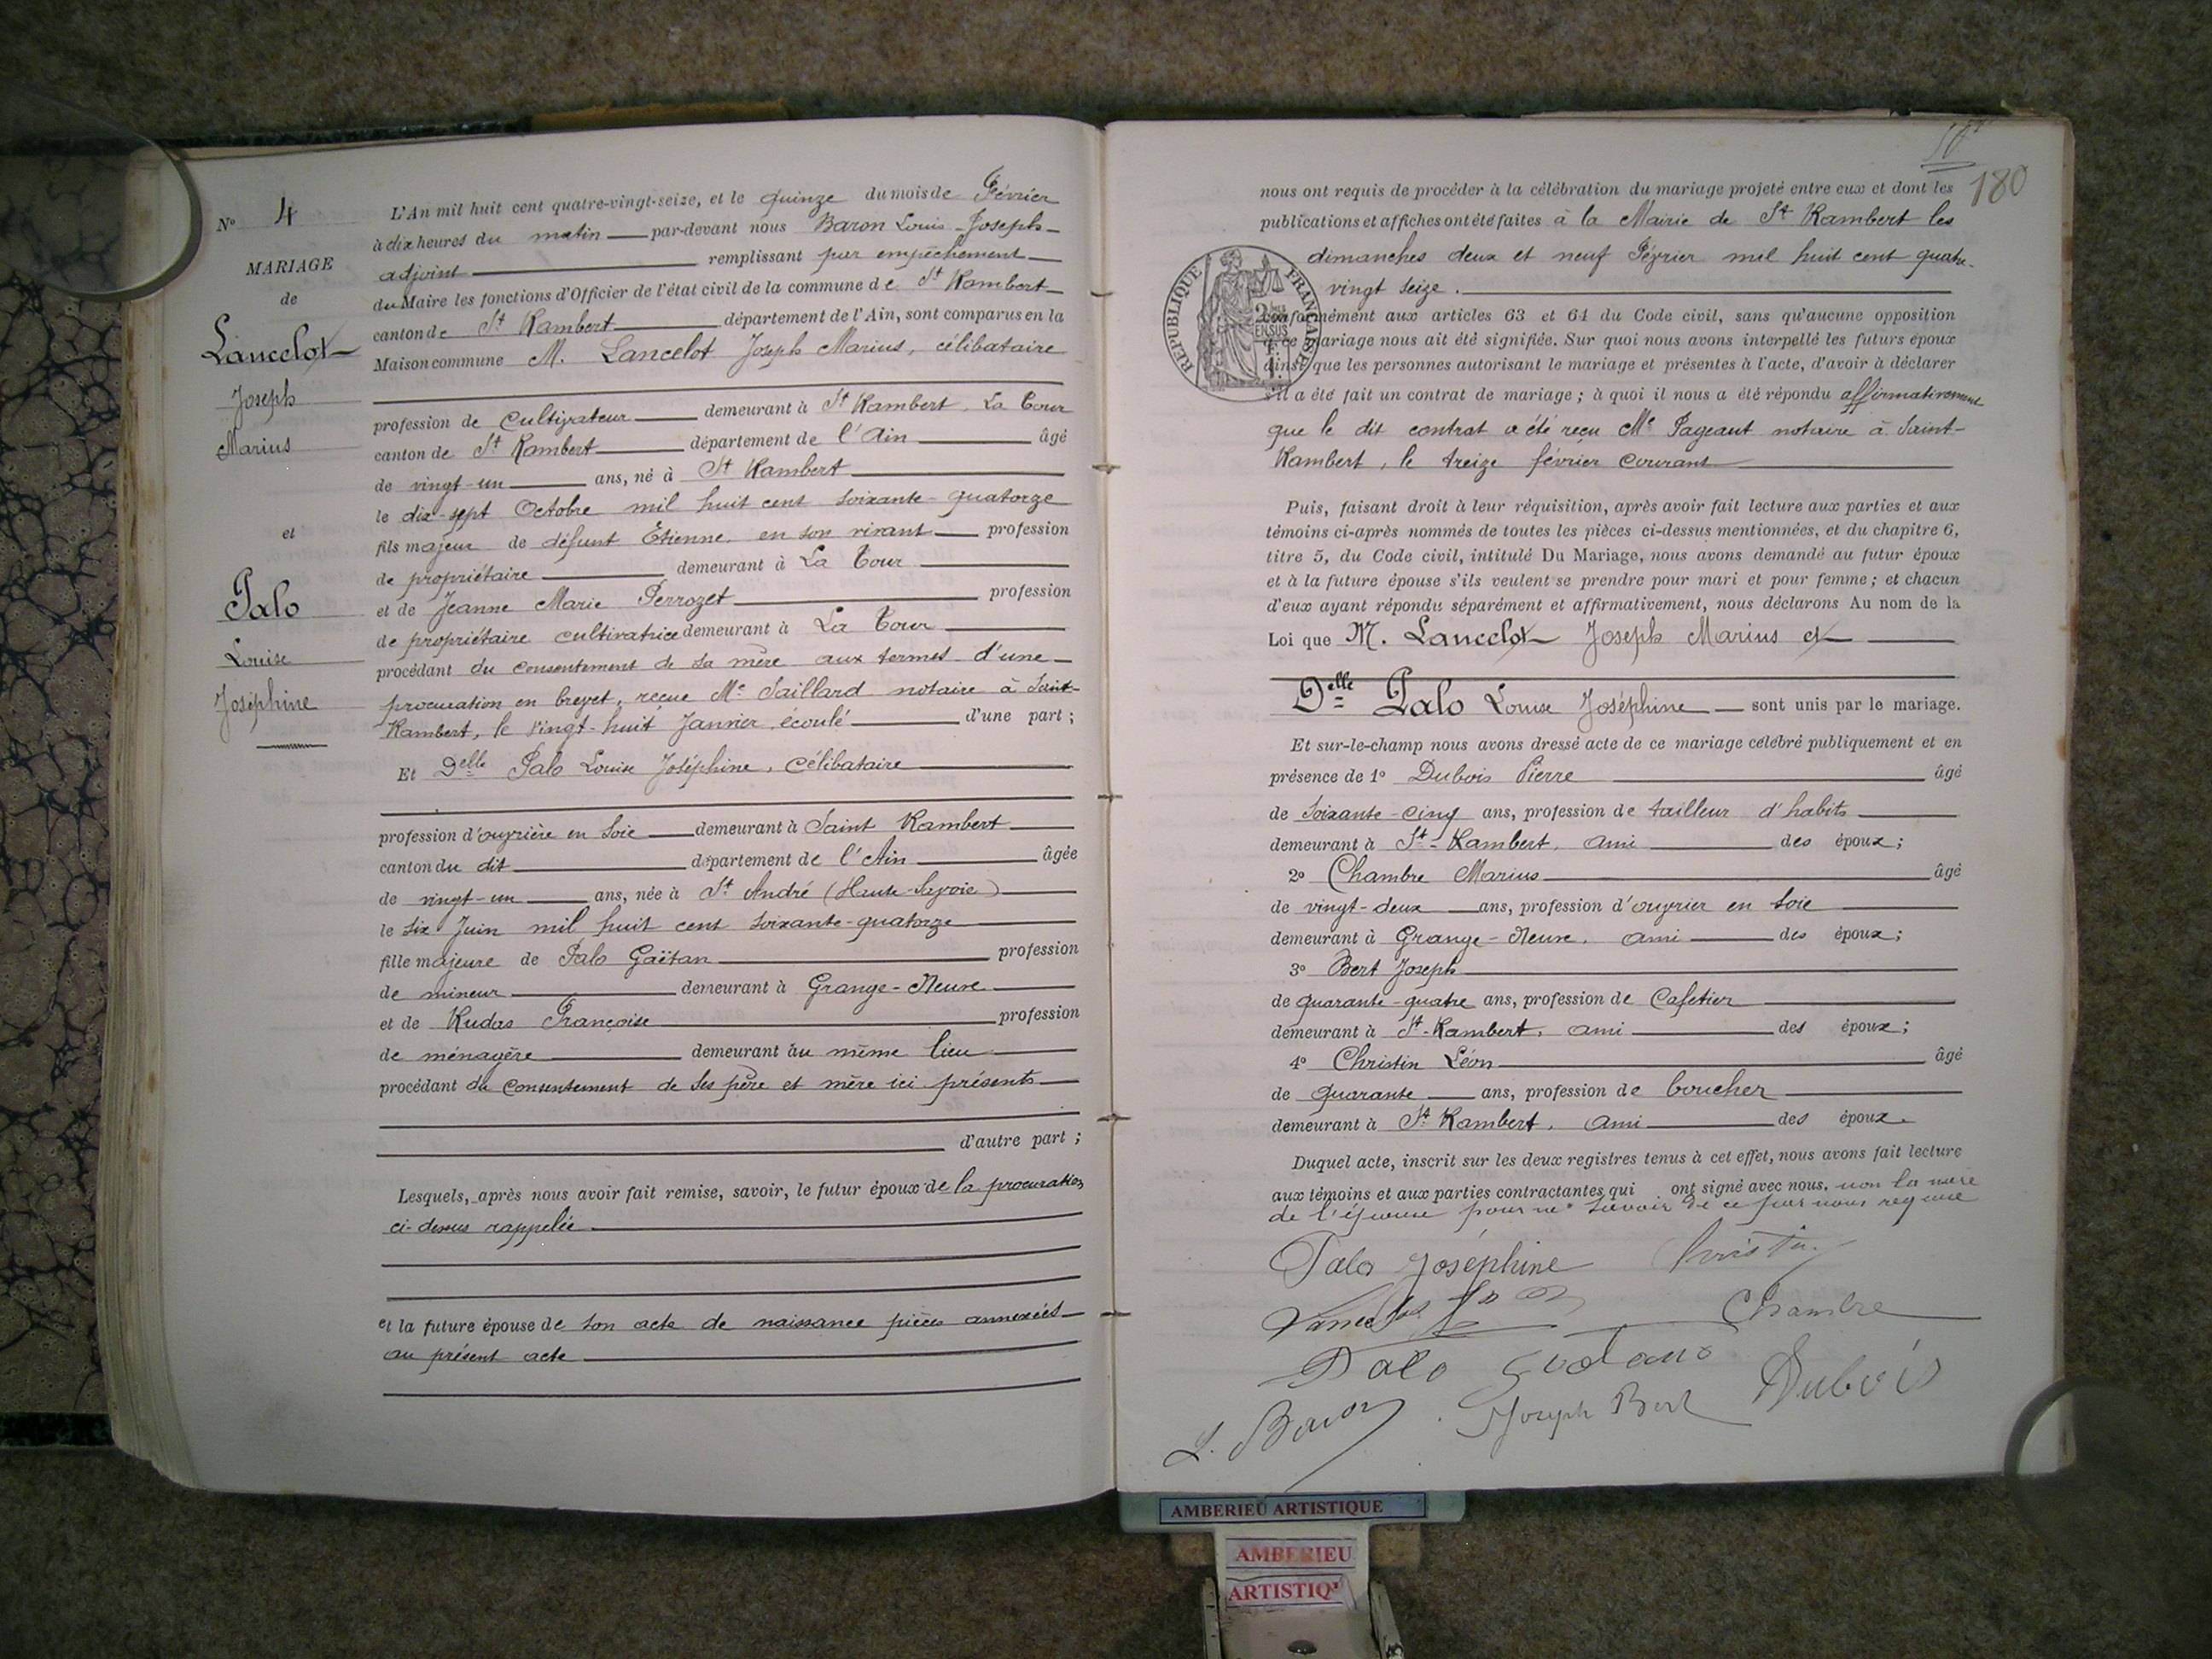 N° 4
MARIAGE
de
Lancelot
Joseph
Marius
et
Palo
Louise
Joséphine
L'An mil huit cent quatre-vingt-seize, et le quinze du mois de Février
à dix heures du matin par-devant nous Baron Louis-Joseph
adjoint remplissant par empêchement
du Maire les fonctions d'Officier de l'état civil de la commune de St Rambert
canton de St Rambert département de l'Ain, sont comparus en la
Maison commune M. Lancelot Joseph Marius, célibataire
profession de cultivateur demeurant à St Rambert, La Tour
canton de St Rambert département de l'Ain âgé
de vingt-un ans, né à St Rambert
le dix-sept Octobre mil huit cent soixante-quatorze
fils majeur de défunt Étienne, en son vivant profession
de propriétaire demeurant à La Tour
et de Jeanne Marie Perrozet profession
de propriétaire cultivatrice demeurant à La Tour
procédant du consentement de sa mère aux termes d'une
procuration en brevet, reçue Me Saillard notaire à Saint-
Rambert, le vingt-huit Janvier, écoulé d'une part ;
Et Delle Palo Louise Joséphine, célibataire
profession d'ouvrière en soie demeurant à Saint Rambert
canton du dit département de l'Ain âgée
de vingt-un ans, née à St André (Haute-Savoie)
le six Juin mil huit cent soixante-quatorze
fille majeure de Palo Gaëtan profession
de mineur demeurant à Grange-Neuve
et de Rudas Françoise profession
de ménagère demeurant au même lieu
procédant du consentement de ses père et mère ici présents
d'autre part ;
Lesquels, après nous avoir fait remise, savoir, le futur époux de la procuration
ci-dessus rappelée
et la future épouse de son acte de naissance pièces annexées
au présent acte
180
nous ont requis de procéder à la célébration du mariage projeté entre eux et dont les
publications et affiches ont été faites à la Mairie de St Rambert les
dimanches deux et neuf Février mil huit cent quatre-
vingt seize.
RÉPUBLIQUE FRANÇAISE
conformément aux articles 63 et 64 du Code civil, sans qu'aucune opposition
à ce mariage nous ait été signifiée. Sur quoi nous avons interpellé les futurs époux
ainsi que les personnes autorisant le mariage et présentes à l'acte, d'avoir à déclarer
s'il a été fait un contrat de mariage ; à quoi il nous a été répondu affirmativement
que le dit contrat a été reçu Me Pageaut notaire à Saint-
Rambert, le treize février courant
Puis, faisant droit à leur réquisition, après avoir fait lecture aux parties et aux
témoins ci-après nommés de toutes les pièces ci-dessus mentionnées, et du chapitre 6,
titre 5, du Code civil, intitulé Du Mariage, nous avons demandé au futur époux
et à la future épouse s'ils veulent se prendre pour mari et pour femme ; et chacun
d'eux ayant répondu séparément et affirmativement, nous déclarons Au nom de la
Loi que M. Lancelot Joseph Marius et
Delle Palo Louise Joséphine sont unis par le mariage.
Et sur-le-champ nous avons dressé acte de ce mariage célébré publiquement et en
présence de 1° Dubois Pierre âgé
de soixante-cinq ans, profession de tailleur d'habits
demeurant à St-Rambert, ami des époux ;
2° Chambre Marius âgé
de vingt-deux ans, profession d'ouvrier en soie
demeurant à Grange-Neuve, ami des époux ;
3° Bert Joseph
de quarante-quatre ans, profession de Cafetier
demeurant à St-Rambert, ami des époux ;
4° Christin Léon âgé
de quarante ans, profession de boucher
demeurant à St Rambert, ami des époux.
Duquel acte, inscrit sur les deux registres tenus à cet effet, nous avons fait lecture
aux témoins et aux parties contractantes qui ont signé avec nous, non la mère
de l'épouse pour ne savoir de ce par nous requise
Palo Joséphine Christin
Lancelot
Chambre
Palo
Dubois
Joseph Bert
L. Baron
AMBERIEU ARTISTIQUE
AMBERIEU
ARTISTIQ